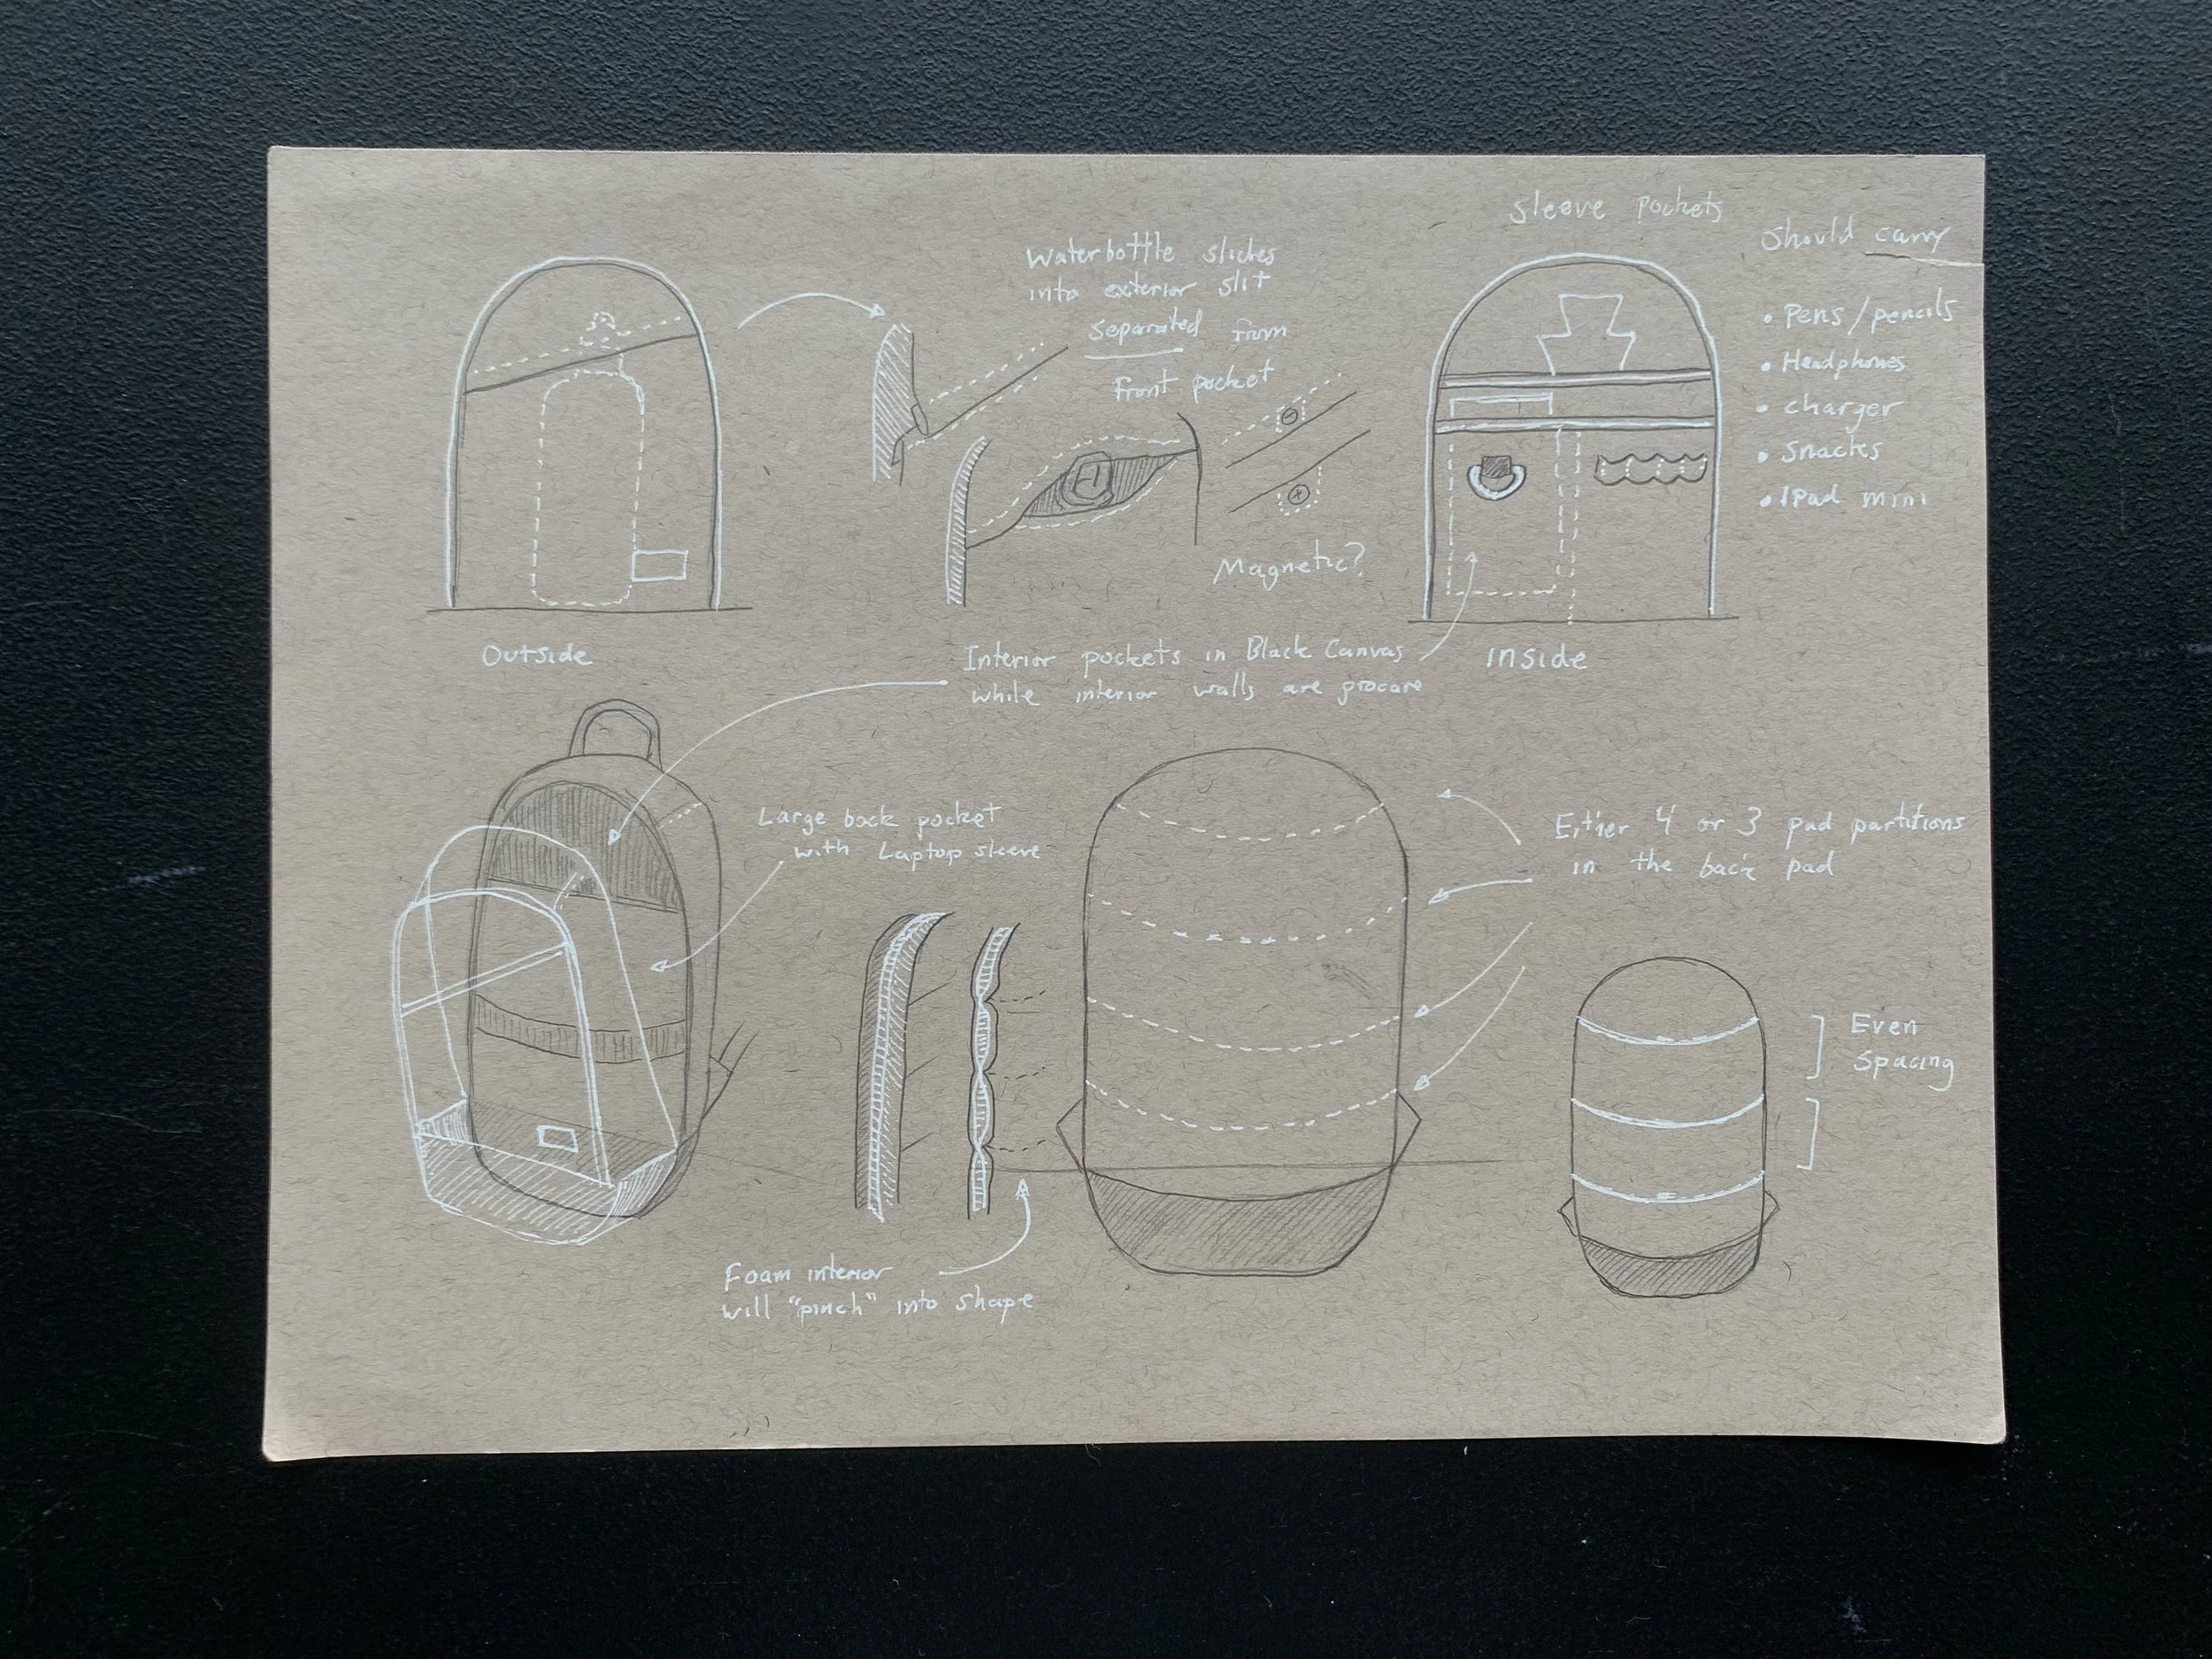 Waterbottle slides
into exterior slit
separated from
Front pocket
Magnetic?
Sleeve pockets
Should carry
• Pens/pencils
• Headphones
• charger
• Snacks
• IPad mini
Outside
inside
Interior pockets in Black Canvas
while interior walls are procare
Large back pocket
with Laptop sleeve
Either 4 or 3 pad partitions
in the back pad
Even
Spacing
Foam interior
will "pinch" into shape